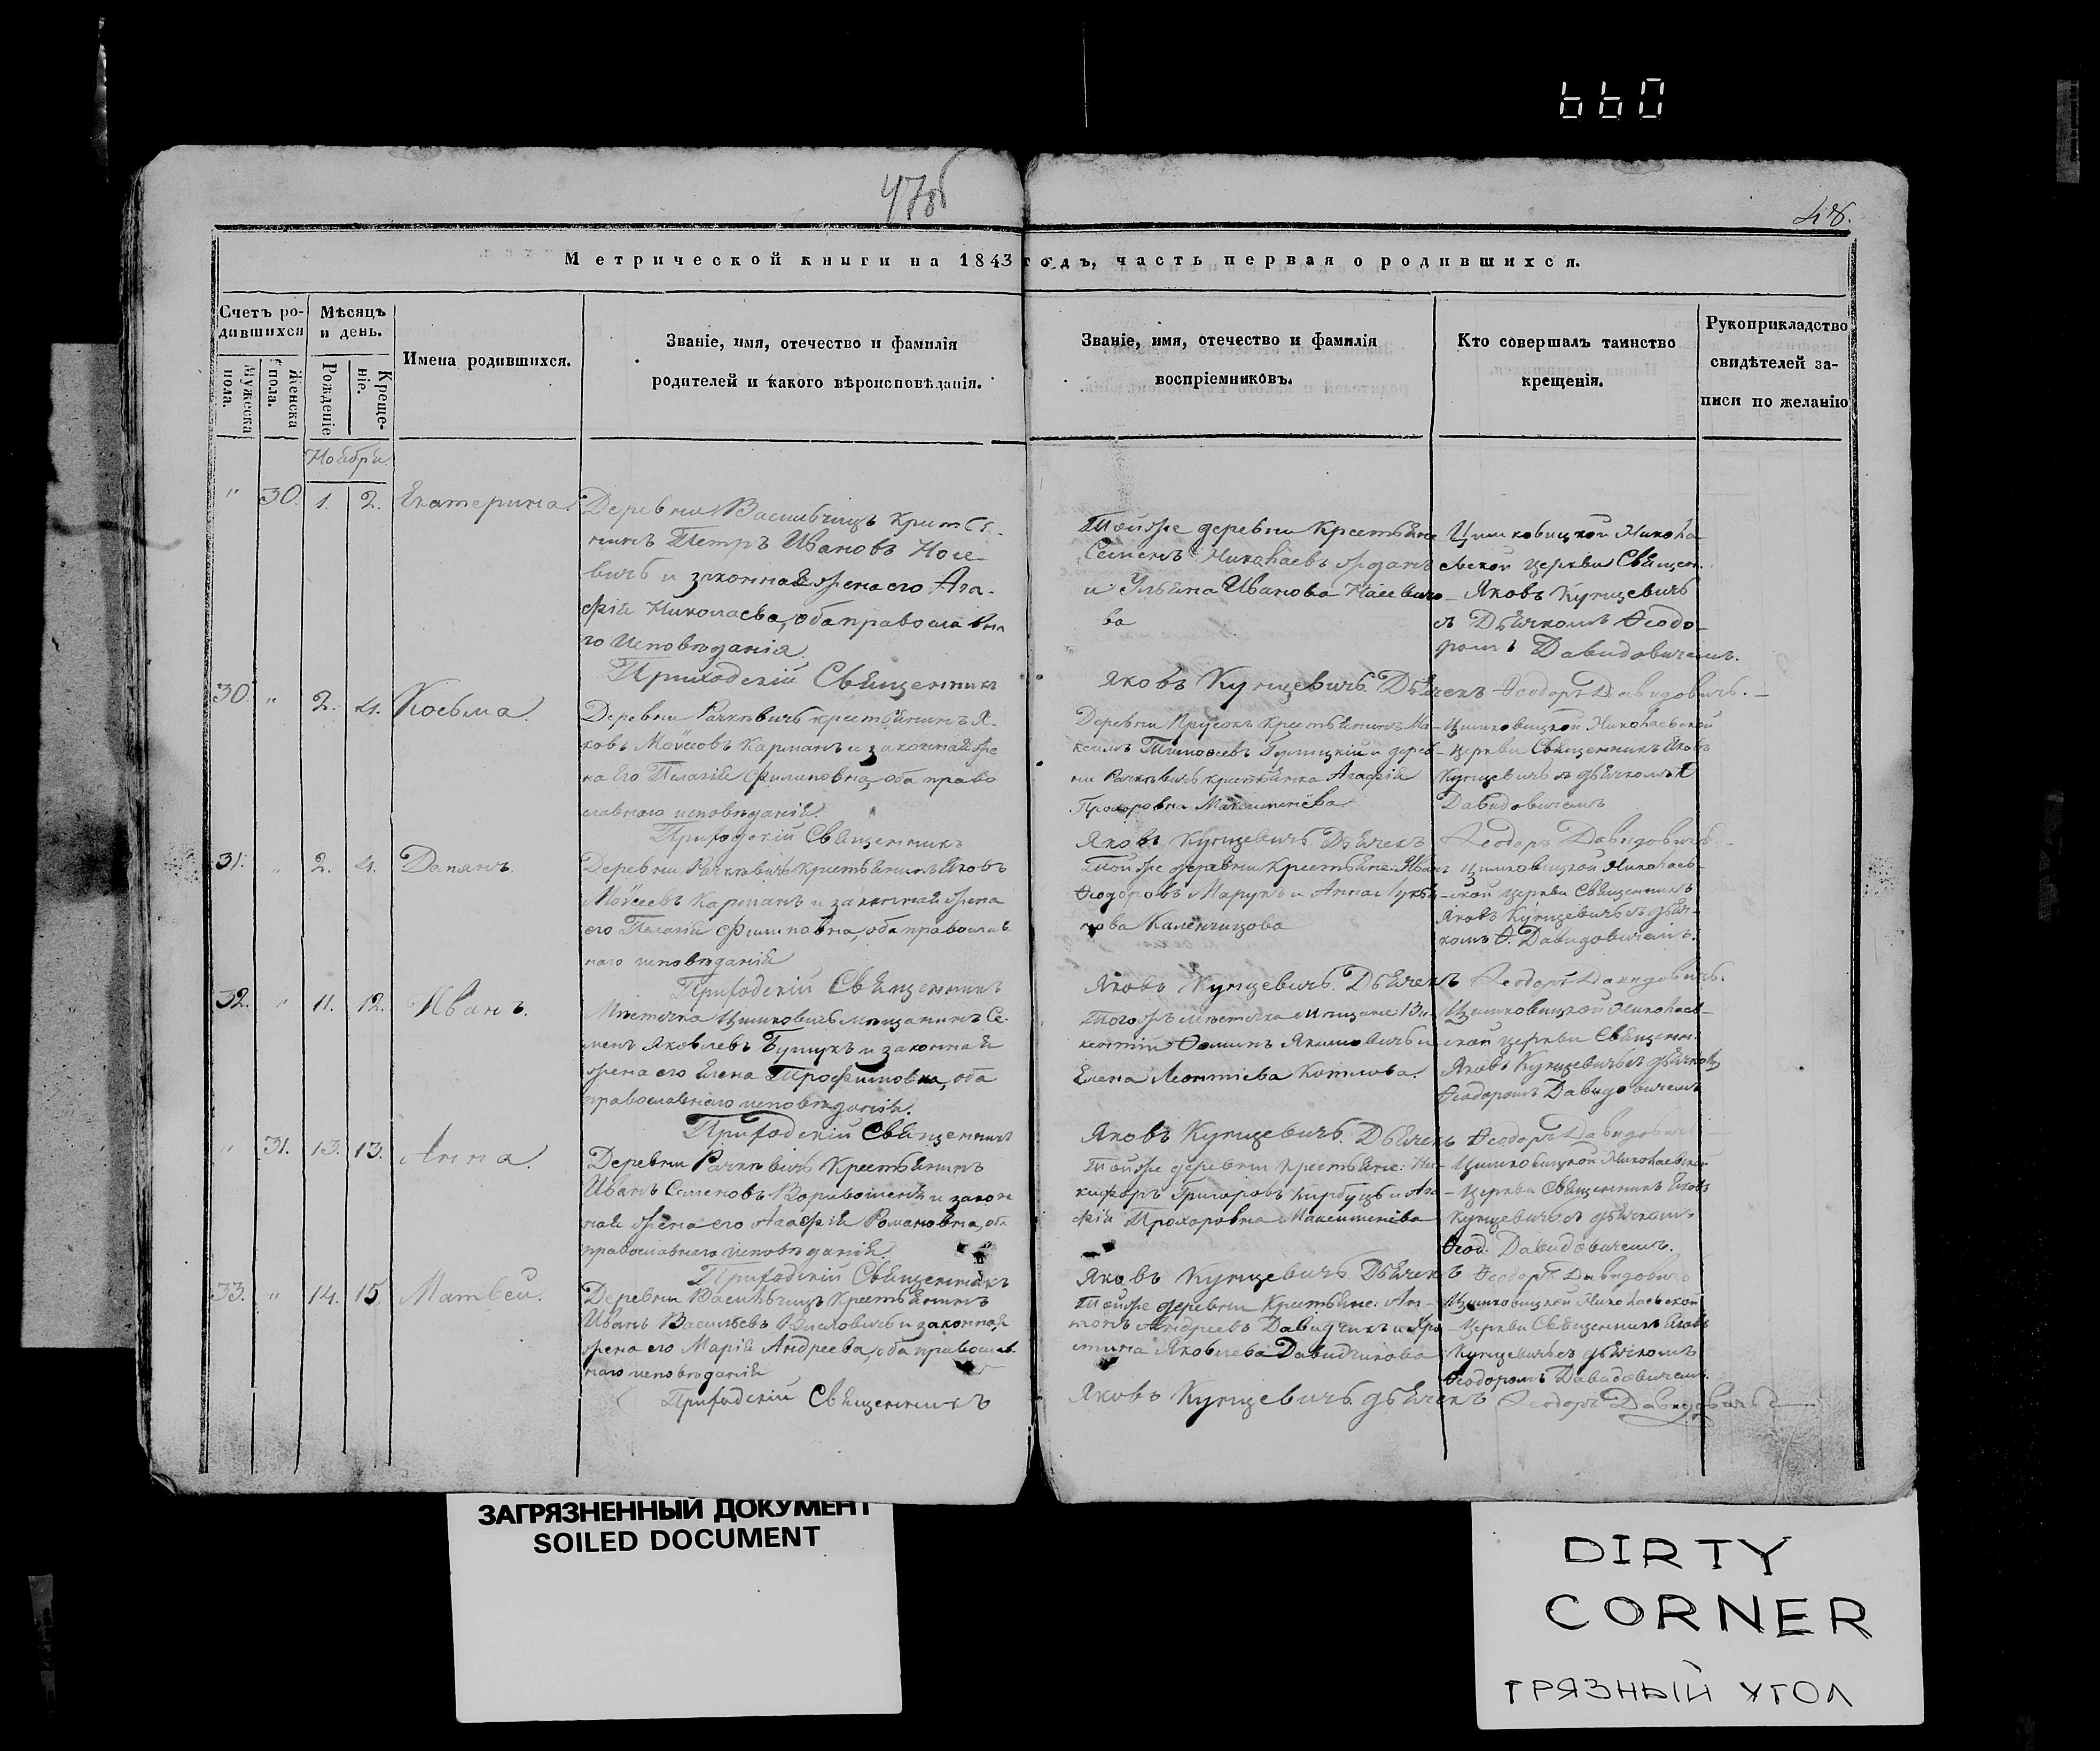 660
47об
48.
Метрической книги на 1843 годъ, часть первая о родившихся.
Счетъ родившихся
Мужеска пола.
Женска пола.
Мѣсяцъ и день.
Рожденіе
Крещеніе.
Имена родившихся.
Званіе, имя, отечество и фамилія
родителей и какого вѣроисповѣданія.
Званіе, имя, отечество и фамилія
воспріемниковъ.
Кто совершалъ таинство
крещенія.
Рукоприкладство
свидѣтелей за-
писи по желанію
Ноября
" 30. 1. 2. Екатерина.
Деревни Васильчицъ Крестья-
нинъ Петръ Ивановъ
и законная жена его Ага-
фія Николаева, оба православна
го исповѣданія.
Тойже деревни Крестьяне
Семенъ Николаевъ
и Ульяна Иванова
ва
Цимковицкой Никола
евской церкви Священ.
Яковъ Купцевичъ
съ Дьячкомъ Ѳеодо-
ромъ Давидовичемъ.
Приходскій Священникъ Яковъ Купцевичъ. Дьячекъ Ѳеодоръ Давидовичъ.
30. " 2. 4. Косьма.
Деревни крестьянинъ Я-
ковъ Моѵсеовъ Карманъ и законная же
на его Пелагія Филиповна, оба право
славнаго исповѣданія.
Деревни Прусокъ Крестьянинъ Ма-
ксимъ Тимоѳеевъ и дерев-
ни крестьянка Агафія
Прохоровна
Цимковицкой Николаевской
церкви Священникъ Яковъ
Купцевичъ съ дьячкомъ
Давидовичемъ
Приходскій Священникъ Яковъ Купцевичъ Дьячекъ Ѳеодоръ Давидовичъ.
31. " 2. 4. Демянъ.
Деревни Крестьянинъ Яковъ
Моѵсеевъ Карманъ и законная жена
его Пелагія Филиповна, оба православ
наго исповѣданія
Тойже деревни Крестьяне: Иванъ
Ѳеодоровъ Марукъ и Анна Лукья-
нова Каленчицова
Цимковицкой Николаев-
ской церкви Священникъ
Яковъ Купцевичъ съ дьяч-
комъ Ѳ. Давидовичемъ.
Приходскій Священникъ Яковъ Купцевичъ. Дьячекъ Ѳеодоръ Давидовичъ.
32. " 11. 12. Иванъ.
Мѣстечка Цимковичъ мѣщанинъ Се-
менъ Яковлевъ и законная
жена его Елена Трофимовна, оба
православнаго исповѣданія.
Тогожъ мѣстечка мѣщане: Ви-
кентій Ѳоминъ Якимовичъ и
Елена Леонтіева Котлова.
Цимковицкой Николаев-
ской церкви Священ.
Яковъ Купцевичъ съ дьячкомъ
Ѳеодоромъ Давидовичемъ
Приходскій Священникъ Яковъ Купцевичъ. Дьячекъ Ѳеодоръ Давидовичъ
" 31. 13. 13. Анна.
Деревни Крестьянинъ
Иванъ Семеновъ и закон
ная жена его Агафія Романовна, оба
православнаго исповѣданія.
Тойже деревни Крестьяне: Ни-
кифоръ Григоровъ и Ага-
фія Прохоровна
Цимковицкой Николаевской
Церкви Священникъ Яковъ
Купцевичъ съ дьячкомъ
Ѳеод. Давидовичемъ.
Приходскій Священникъ Яковъ Купцевичъ. Дьячекъ Ѳеодоръ Давидовичъ
33. " 14. 15. Матвей.
Деревни Васильчицъ Крестьянинъ
Иванъ Васильевъ и законная
жена его Марія Андреева, оба православ-
наго исповѣданія
Тойже деревни Крестьяне: Ан-
тонъ Андреевъ Давидчикъ и Хри-
стина Яковлева Давидчикова
Цимковицкой Николаевской
Церкви Священникъ Яковъ
Купцевичъ съ дьячкомъ
Ѳеодоромъ Давидовичемъ.
Приходскій Священникъ Яковъ Купцевичъ. дьячекъ Ѳеодоръ Давидовичъ
ЗАГРЯЗНЕННЫЙ ДОКУМЕНТ
SOILED DOCUMENT
DIRTY
CORNER
ГРЯЗНЫЙ УГОЛ